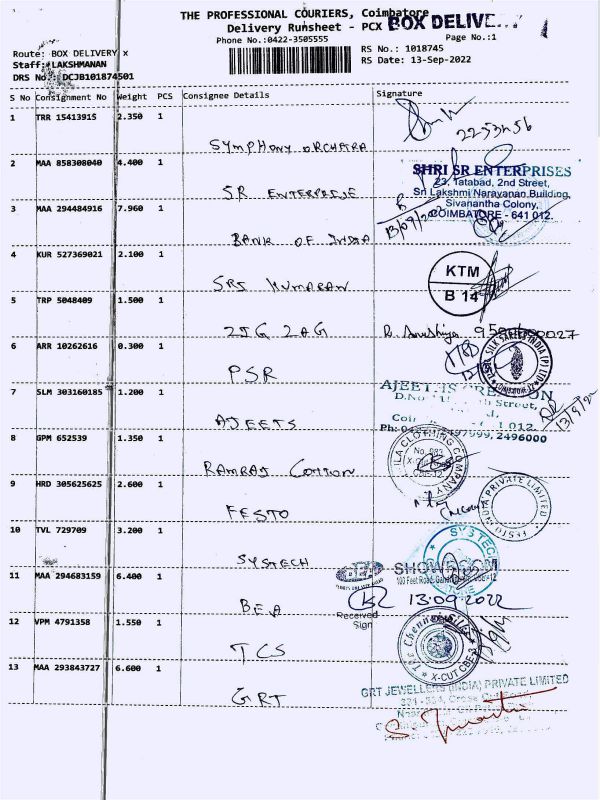 THE PROFESSIONAL COURIERS, Coimbatore
Delivery Runsheet - PCX BOX DELIVE
Phone No.:0422-3505555
Page No.:1
Route: BOX DELIVERY x
RS No.: 1018745
Staff: LAKSHMANAN
RS Date: 13-Sep-2022
DRS No: DCJB101874501
S No Consignment No Weight PCS Consignee Details Signature
1 TRR 1541391S 2.350 1
SYMPHONY ORCHATRA
2 MAA 858308040 4.400 1
SR ENTERPRISE
SHRI SR ENTERPRISES
23, Tatabad, 2nd Street,
Sri Lakshmi Narayanan Building,
Sivanantha Colony,
COIMBATORE - 641 012.
13/09/2022
3 MAA 294484916 7.960 1
BANK OF INDIA
4 KUR 527369021 2.100 1
SRI KUMARAN
KTM
B 14
5 TRP 5048409 1.500 1
ZIG ZAG
6 ARR 10262616 0.300 1
PSR
7 SLM 303160185 1.200 1
AJEETS
13/9/22
2496000
8 GPM 652539 1.350 1
RAMRAJ COTTON
CLOTHING COMPANY
9 HRD 305625625 2.600 1
FESTO
FESTO INDIA PRIVATE LIMITED
10 TVL 729709 3.200 1
SYSTECH
SYSTECH
11 MAA 294683159 6.400 1
SHOWROOM
100 Feet Road,
BEA
Received
Sign
13.09.2022
12 VPM 4791358 1.550 1
TCS
The Chennai Silks
X-CUT CBE-
13 MAA 293843727 6.600 1
GRT
GRT JEWELLERS (INDIA) PRIVATE LIMITED